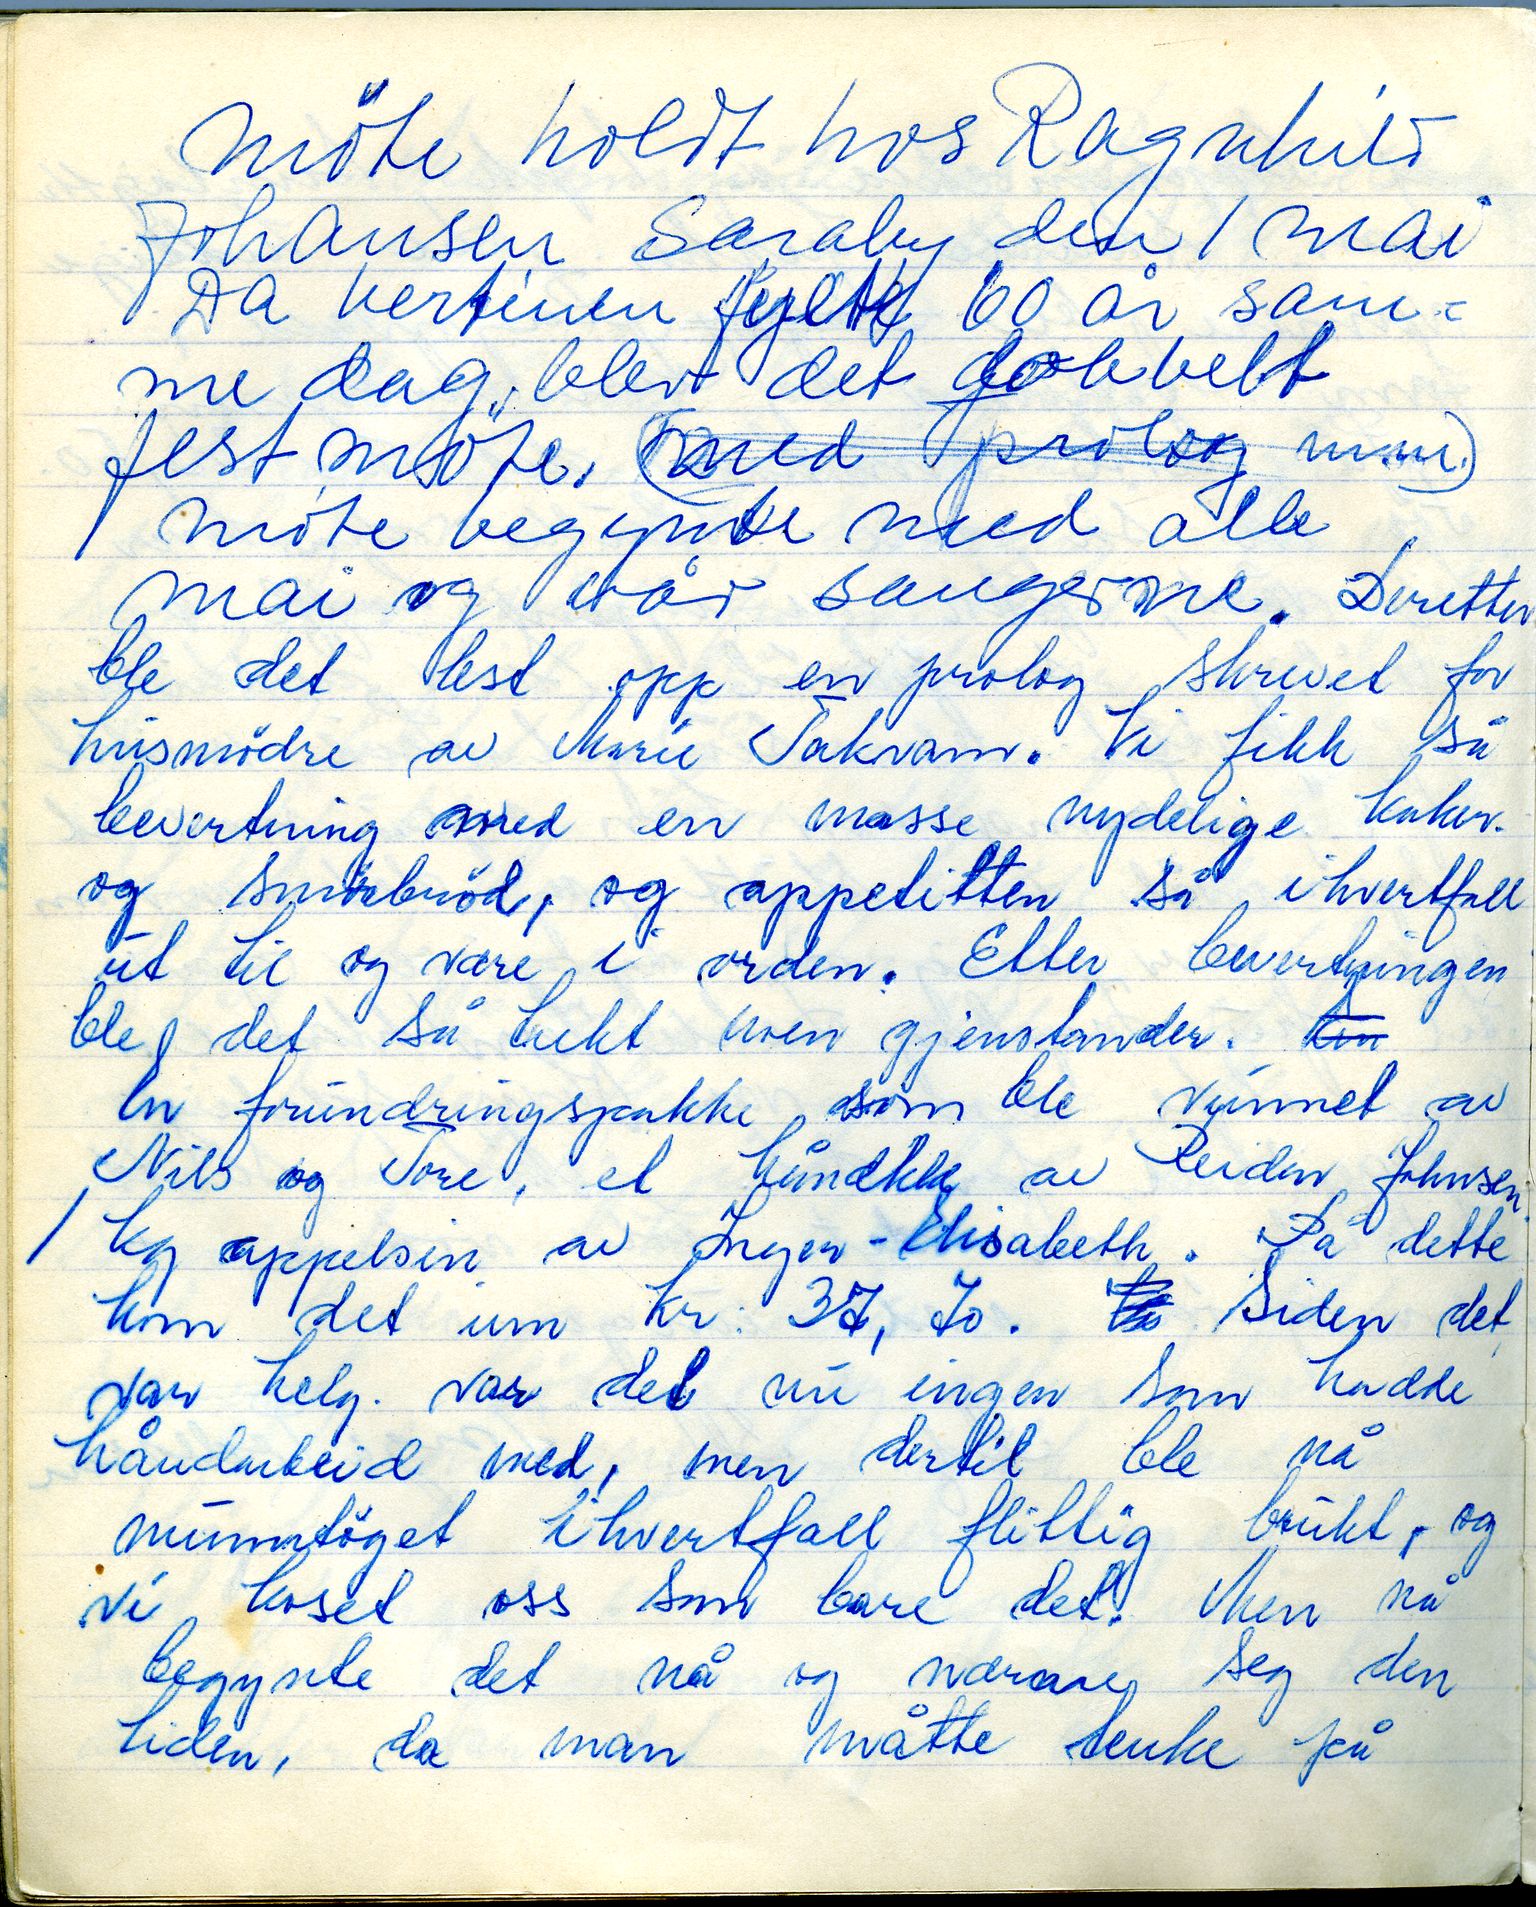 Möte holdt hos Ragnhild
Johansen Saraby den 1 mai
Da vertinen fyllte 60 år sam-
me dag, blev det dobbelt
fest möte. (med prolog m.m.)
möte begynte med alle
mai og vår sangerne. Deretter
ble det lest opp en prolog skrevet for
husmödre av Marie Takvam. Vi fikk så
bevertning med en masse nydelige kaker.
og smörbröd, og appetitten så ihvertfall
ut til og være i orden. Etter bevertningen
ble det så trekt noen gjenstander.
En forundringspakke som ble vunnet av
Nils og Tore, et håndkle av Reidun Johnsen
1 kg appelsin av Inger-Elisabeth. På dette
kom det inn kr: 37,70. Siden det
var helg. var det nu ingen som hadde
håndarbeid med, men dertil ble nå
munntöget ihvertfall flittig brukt, og
vi koset oss som bare det. Men nå
begynte det nå og nærme seg den
tiden, da man måtte tenke på